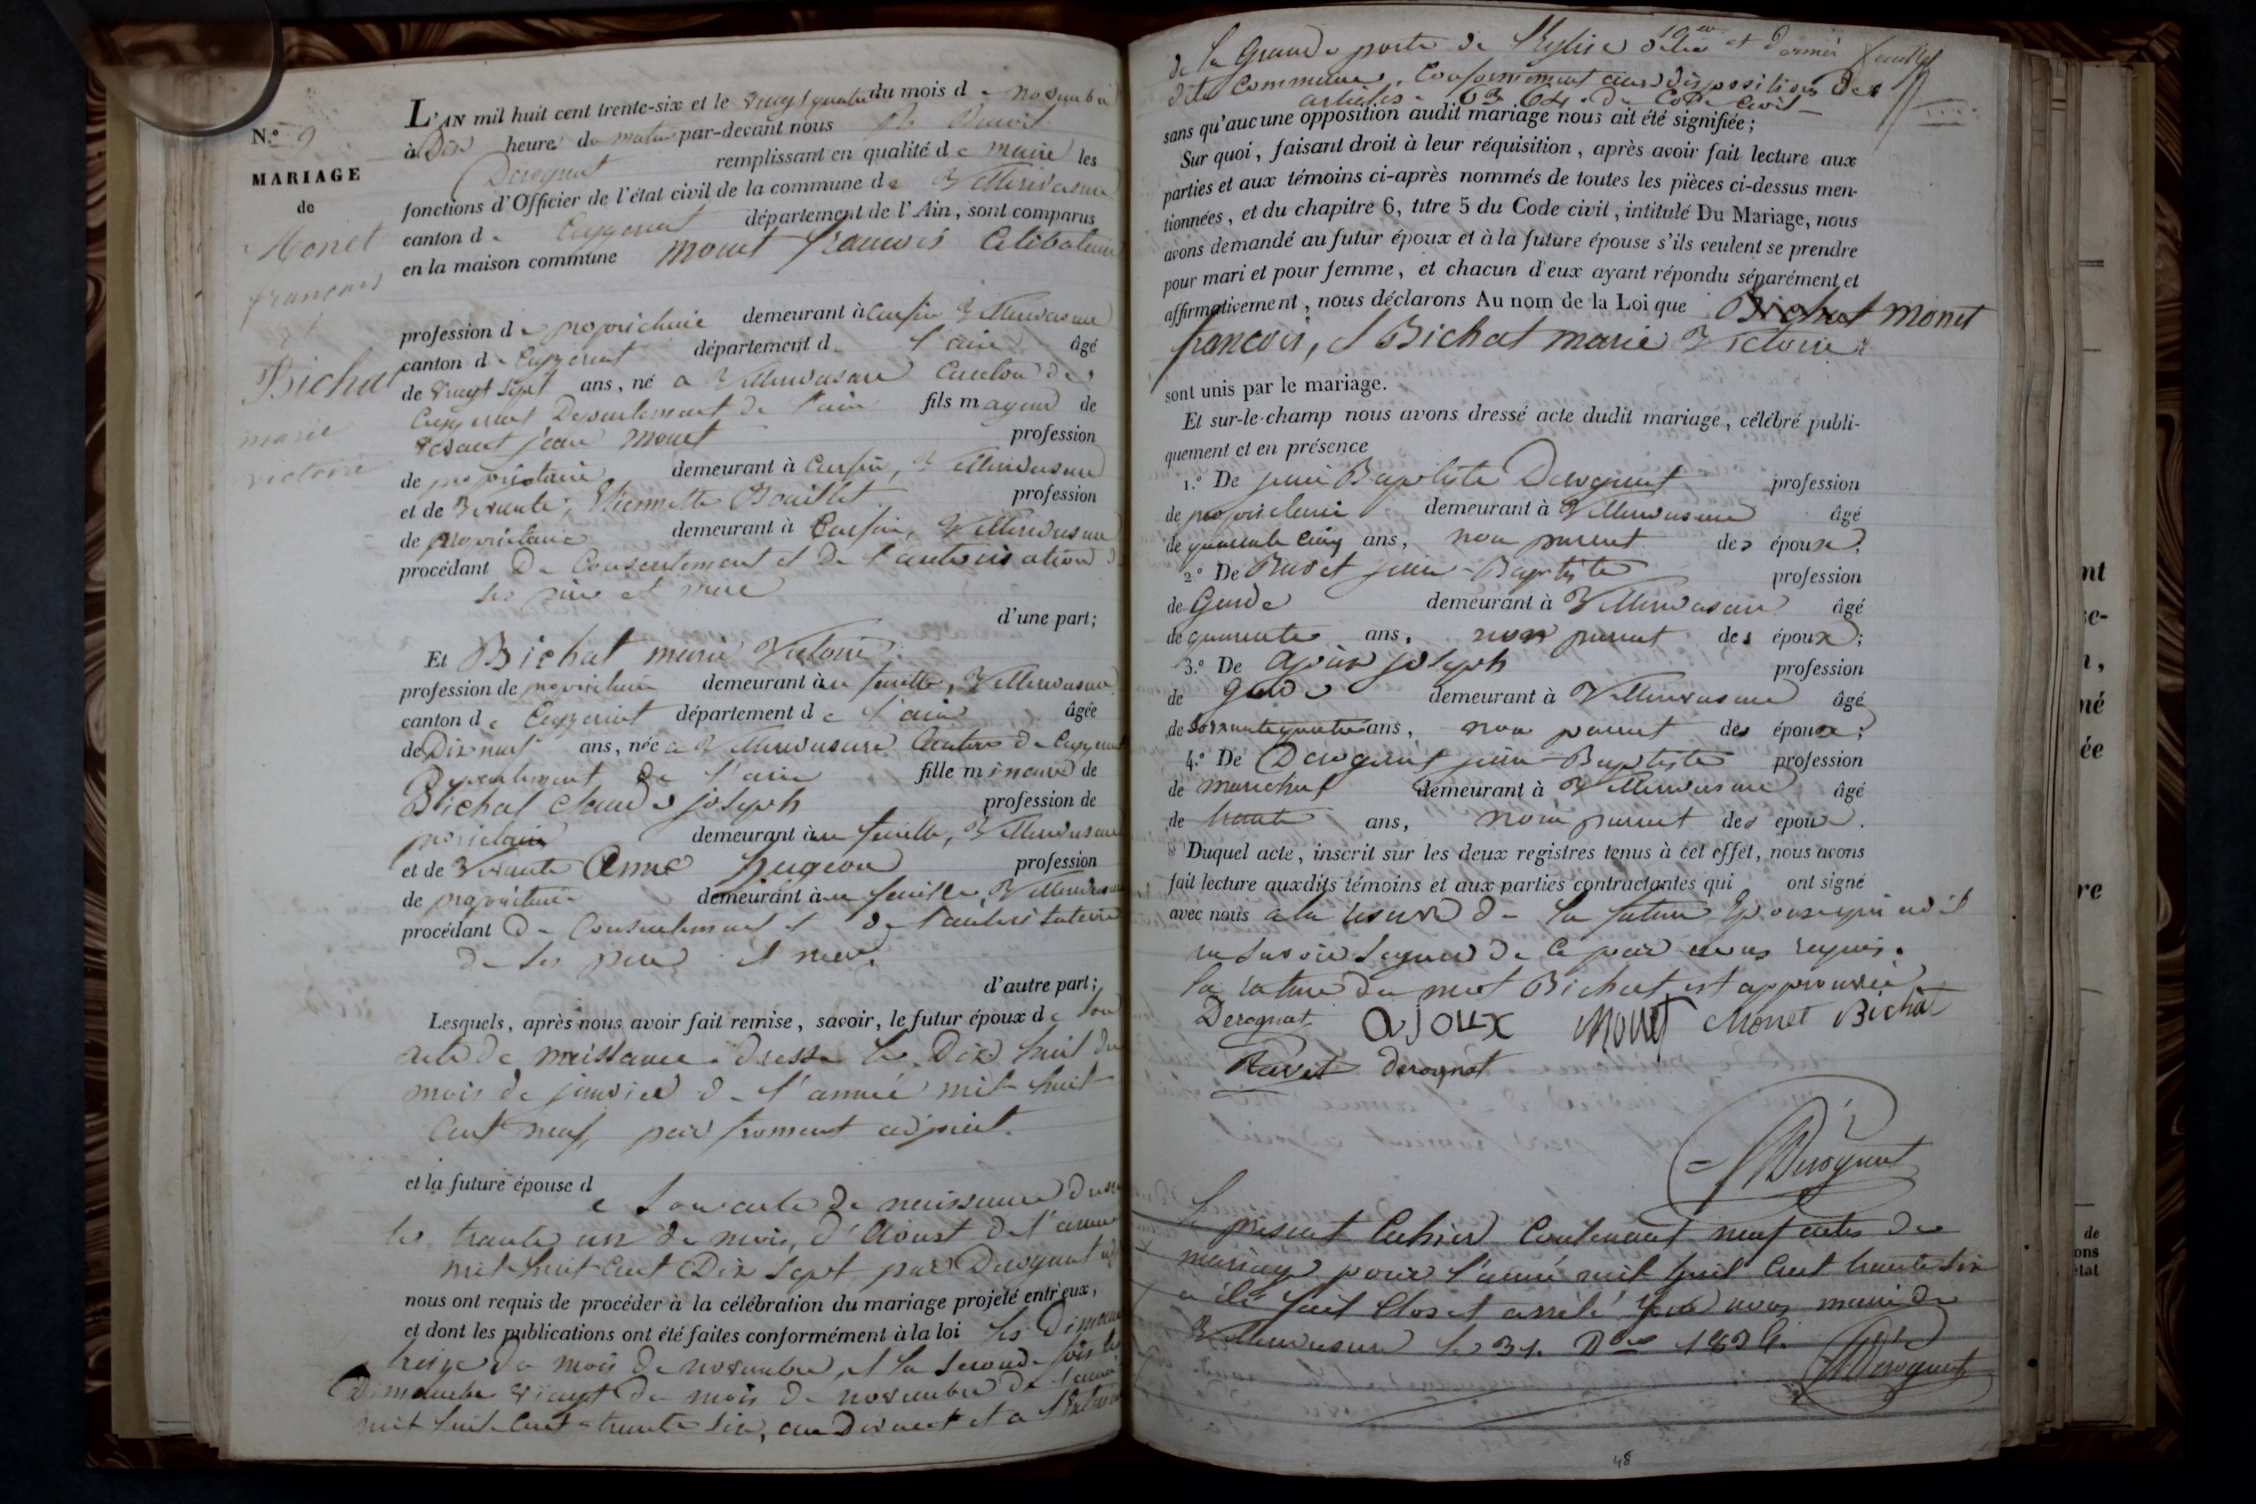 N.º 9
MARIAGE
de
Monet
francois
et
Bichat
marie
victoire
L'AN mil huit cent trente-six et le vingt quatre du mois de novembre
à Dix heure du matin par-devant nous
Derognat remplissant en qualité de maire les
fonctions d'Officier de l'état civil de la commune de Villereversure
canton de Ceyzeriat département de l'Ain, sont comparus
en la maison commune monet francois Celibataire
profession de proprietaire demeurant à Cursin Villereversure
canton de Ceyzeriat département de l'ain âgé
de vingt sept ans, né a Villereversure Canton de
Ceyzeriat Departement de l'ain fils mageur de
vivant jean monet profession
de proprietaire demeurant à Cursin, Villereversure
et de vivante, Etiennette Bouillet profession
de proprietaire demeurant à Cursin, Villereversure
procédant Du Consentement et De l'autorisation de
ses pere et mere
d'une part;
Et Bichat marie Victoire
profession de proprietaire demeurant à Villereversure
canton de Ceyzeriat département de l'ain âgée
de Dix neuf ans, née a Villereversure Canton de Ceyzeriat
Departement de l'ain fille mineure de
Bichat claude joseph profession de
proprietaire demeurant à Villereversure
et de vivante Anne hugon profession
de proprietaire demeurant à Villereversure
procédant Du Consentement et de
de ses pere et mere.
d'autre part;
Lesquels, après nous avoir fait remise, savoir, le futur époux de son
acte de naissance dressé le Dix huit du
mois de janvier de l'année mil huit
Cent neuf, par froment adjoint.
et la future épouse d
e son acte de naissance dressé
le trante un du mois d'Aoust de l'année
mil huit Cent Dix sept par Derognat
nous ont requis de procéder à la célébration du mariage projeté entr'eux,
et dont les publications ont été faites conformément à la loi les Dimanche
treize du mois de novembre, et la seconde fois le
Dimanche vingt du mois de novembre de l'année
mil huit Cent trante six, au Devant et a l'Entrée
de la Grande porte de l'Eglise de la
dite Commune, Conformement aux dispositions des
articles 63 64 du Code Civil
10eme et dernier feuillet
sans qu'aucune opposition audit mariage nous ait été signifiée;
Sur quoi, faisant droit à leur réquisition, après avoir fait lecture aux
parties et aux témoins ci-après nommés de toutes les pièces ci-dessus men-
tionnées, et du chapitre 6, titre 5 du Code civil, intitulé Du Mariage, nous
avons demandé au futur époux et à la future épouse s'ils veulent se prendre
pour mari et pour femme, et chacun d'eux ayant répondu séparément et
affirmativement, nous déclarons Au nom de la Loi que Bichat monet
francois, et Bichat marie Victoire
sont unis par le mariage.
Et sur-le-champ nous avons dressé acte dudit mariage, célébré publi-
quement et en présence
1.º De jean Baptiste Derognat profession
de proprietaire demeurant à Villereversure âgé
de quarante cinq ans, non parent des époux;
2.º De Ravet jean Baptiste profession
de Garde demeurant à Villereversure âgé
de quarante ans, non parent des époux;
3.º De Ajoux joseph profession
de garde demeurant à Villereversure âgé
de soixante quatre ans, non parent des époux;
4.º De Derognat jean Baptiste profession
de marechal demeurant à Villereversure âgé
de trante ans, non parent des époux.
Duquel acte, inscrit sur les deux registres tenus à cet effet, nous avons
fait lecture auxdits témoins et aux parties contractantes qui ont signé
avec nous a la reserve de la future Epouse qui a dit
ne savoir signer de ce par nous requis.
la rature du mot Bichat est approuvée
Derognat ajoux Monet Monet Bichat
Ravet derognat
Derognat
le present Cahier Contenant neuf actes de
mariage pour l'année mil huit Cent trante six
a été fait Clos et arrêté par nous maire de
Villereversure le 31. Dbre 1836.
Derognat
48
nt
e-
né
ée
re
de
ons
état